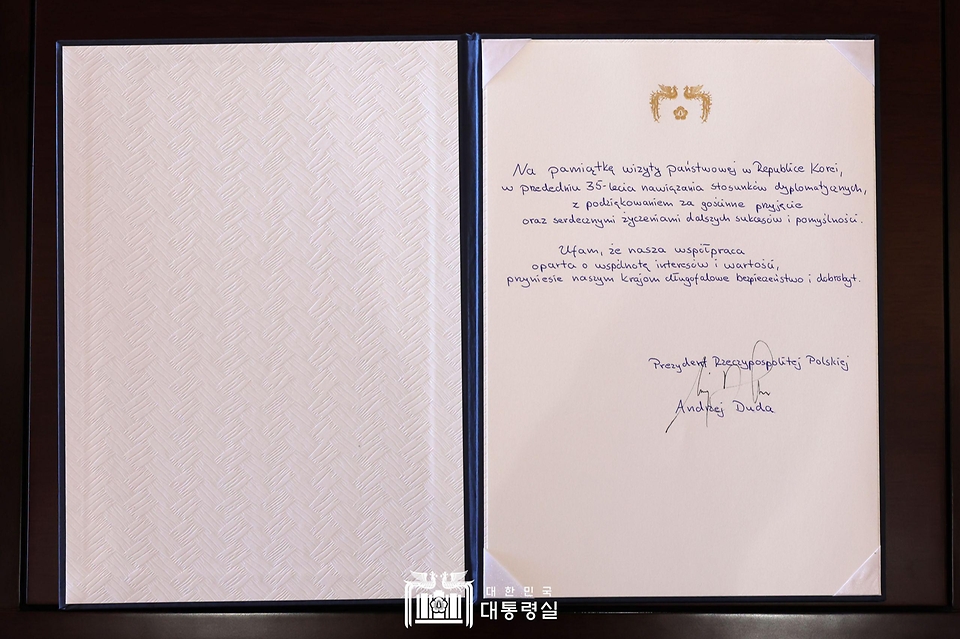 Na pamiątkę wizyty państwowej w Republice Korei,
w przededniu 35-lecia nawiązania stosunków dyplomatycznych,
z podziękowaniem za gościnne przyjęcie
oraz serdecznymi życzeniami dalszych sukcesów i pomyślności.
Ufam, że nasza współpraca
oparta o wspólnotę interesów i wartości,
przyniesie naszym krajom długofalowe bezpieczeństwo i dobrobyt.
Prezydent Rzeczypospolitej Polskiej
Andrzej Duda
대한민국
대통령실